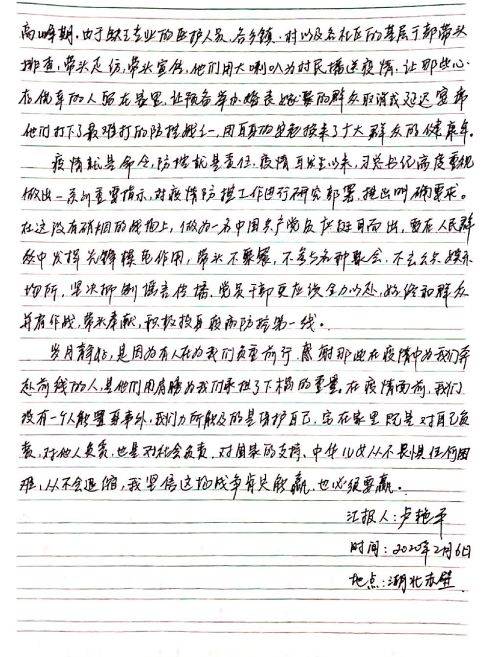 高峰期。由于缺乏专业的医护人员,各乡镇、村以及各社区的基层干部带头
排查,带头走访,带头宣传,他们用大喇叭为村民播送疫情,让那些心
存侥幸的人留在家里,让预备举办婚丧嫁娶的群众取消或延迟宴席
他们打下了最难打的防控战之一,用真功
换来了广大群众的健康。
疫情就是命令,防控就是责任。疫情发生以来,习总书记高度重视
做出一系列重要指示,对疫情防控工作进行研究部署,提出明确要求。
在这没有硝烟的战场上,做为一名中国共产党员应挺身而出,要在人民群
众中发挥先锋模范作用,带头不聚餐,不参与各种聚会,不去公共娱乐
场所,坚决抑制谣言传播。党员干部更应该全力以赴,始终和群众
并肩作战,带头奉献,积极投身疫而防控第一线。
岁月静好,是因为有人在为我们负重前行。感谢那些在疫情中为我们奔
赴前线的人,是他们用肩膀为我们承担了下
的重量。在疫情面前,我们
没有一个人能置身事外,我们力所能及的是保护自己,宅在家里既是对自己负
责,对他人负责,也是对社会负责,对国家的支持。中华儿女从不畏惧任何困
难,从不会退缩,我坚信这场战争肯定能赢,也必须要赢。
汇报人:卢艳平
时间:2020年2月6日
地点:湖北赤壁